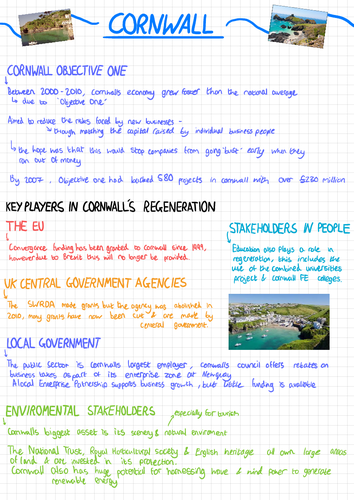 CORNWALL
CORNWALL OBJECTIVE ONE
Between 2000-2010, Cornwalls economy grew faster than the national average
↳ due to "Objective One"
Aimed to reduce the risks faced by new businesses -
↳ though matching the capital raised by individual business people
↳ the hope was that this would stop companies from going 'bust' early when they
ran out of money
By 2007, Objective one had backed 580 projects in cornwall with over £230 million
KEY PLAYERS IN CORNWALL'S REGENERATION
THE EU
Convergance funding has been granted to cornwall since 1999,
however due to Brexit this will no longer be provided.
STAKEHOLDERS IN PEOPLE
Education also plays a role in
regeneration, this includes the
use of the combined universities
project & cornwall FE colleges.
UK CENTRAL GOVERNMENT AGENCIES
The SWRDA made grants but the agency was abolished in
2010, many grants have now been cut & are made by
central government
LOCAL GOVERNMENT
The public sector is cornwalls largest employer, cornwalls council offers rebates on
business rates as part of its enterprise zone at Newquay
A local Enterprise Partnership supports business growth, but little funding is available
ENVIROMENTAL STAKEHOLDERS
especially for tourism
Cornwalls biggest asset is its scenery & natural enviroment
The National Trust, Royal Horticultural society & English heritage all own large areas
of land & are invested in its protection.
Cornwall also has huge potential for harnessing wave & wind power to generate
renewable energy